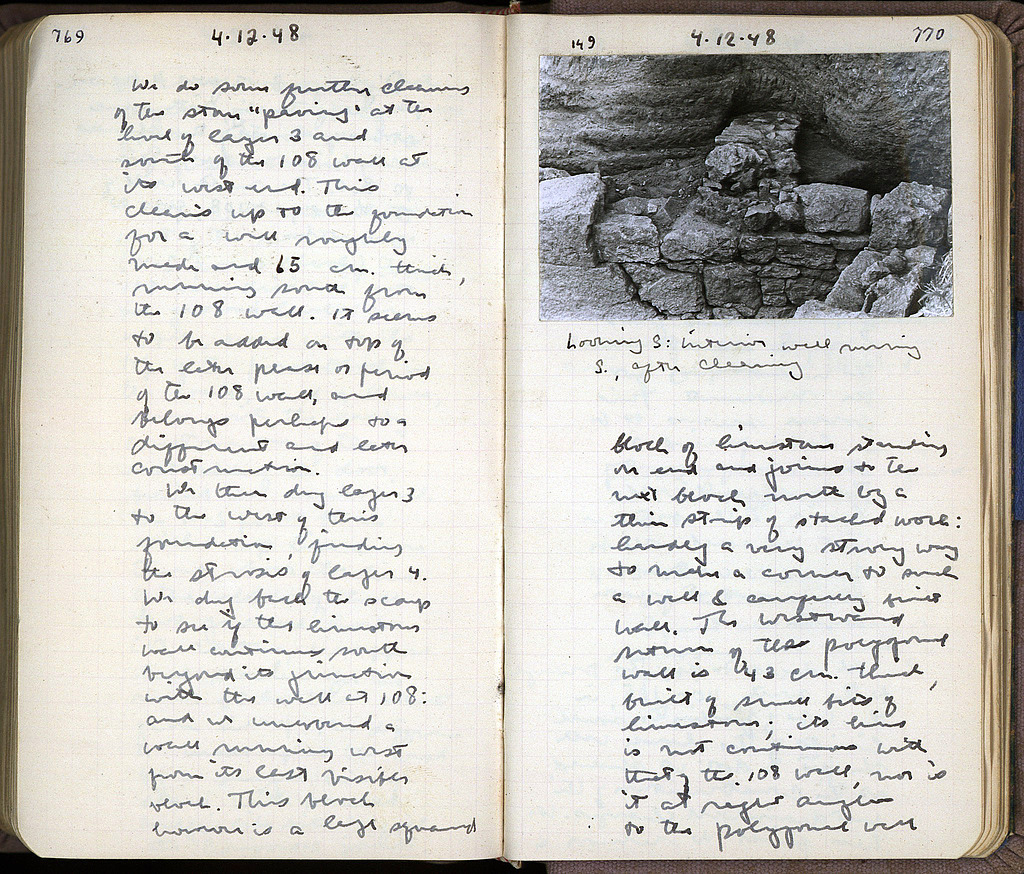 769
4.12.48
We do some further cleaning
of the stone "paving" at the
level of layer 3 and
south of the 108 wall at
its west end. This
cleans up to the foundation
for a wall roughly
made and 65 cm. thick,
running south from
the 108 wall. It seems
to be added on top of
the later phase or period
of the 108 wall, and
belongs perhaps to a
different and later
construction.
We then dig layer 3
to the west of this
foundation, finding
the strosis of layer 4.
We dig back the scarp
to see if the limestone
wall continues south
beyond its junction
with the wall at 108:
and we uncovered a
wall running west
from its last visible
block. This block
however is a large squared
149
4.12.48
770
Looking S: interior wall running
S., after cleaning
block of limestone standing
on end and joins to the
next block north by a
thin strip of stacked work:
hardly a very strong way
to make a corner to such
a well & carefully joined
wall. The westward
return of the polygonal
wall is 43 cm. thick,
built of small bits of
limestone; its line
is not continuous with
that of the 108 wall, nor is
it at right angles
to the polygonal wall